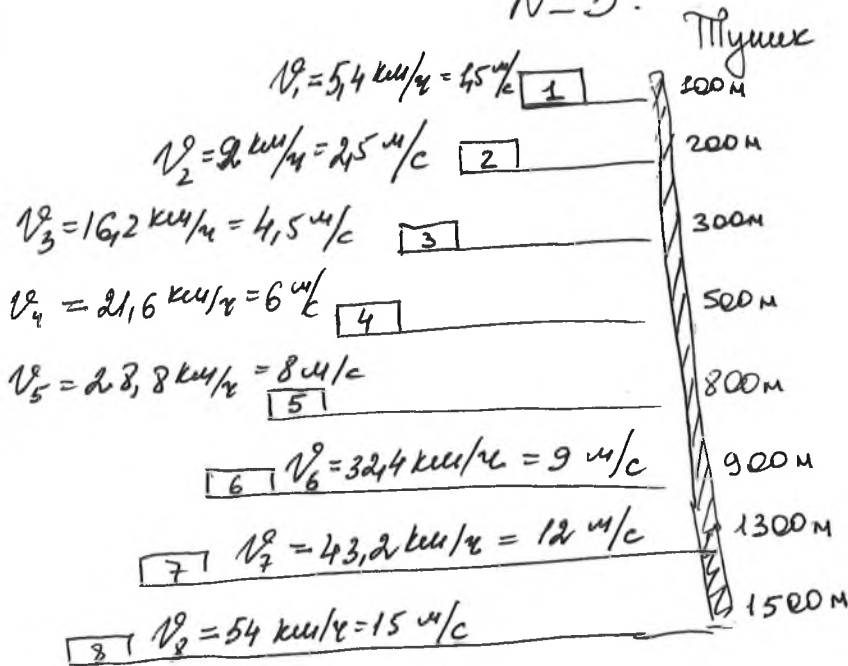 N-3.
Тупик
V₁ = 5,4 км/ч = 1,5 м/с 1 100 м
V₂ = 9 км/ч = 2,5 м/с 2 200 м
V₃ = 16,2 км/ч = 4,5 м/с 3 300 м
V₄ = 21,6 км/ч = 6 м/с 4 500 м
V₅ = 28,8 км/ч = 8 м/с 5 800 м
6 V₆ = 32,4 км/ч = 9 м/с 900 м
7 V₇ = 43,2 км/ч = 12 м/с 1300 м
8 V₈ = 54 км/ч = 15 м/с 1500 м